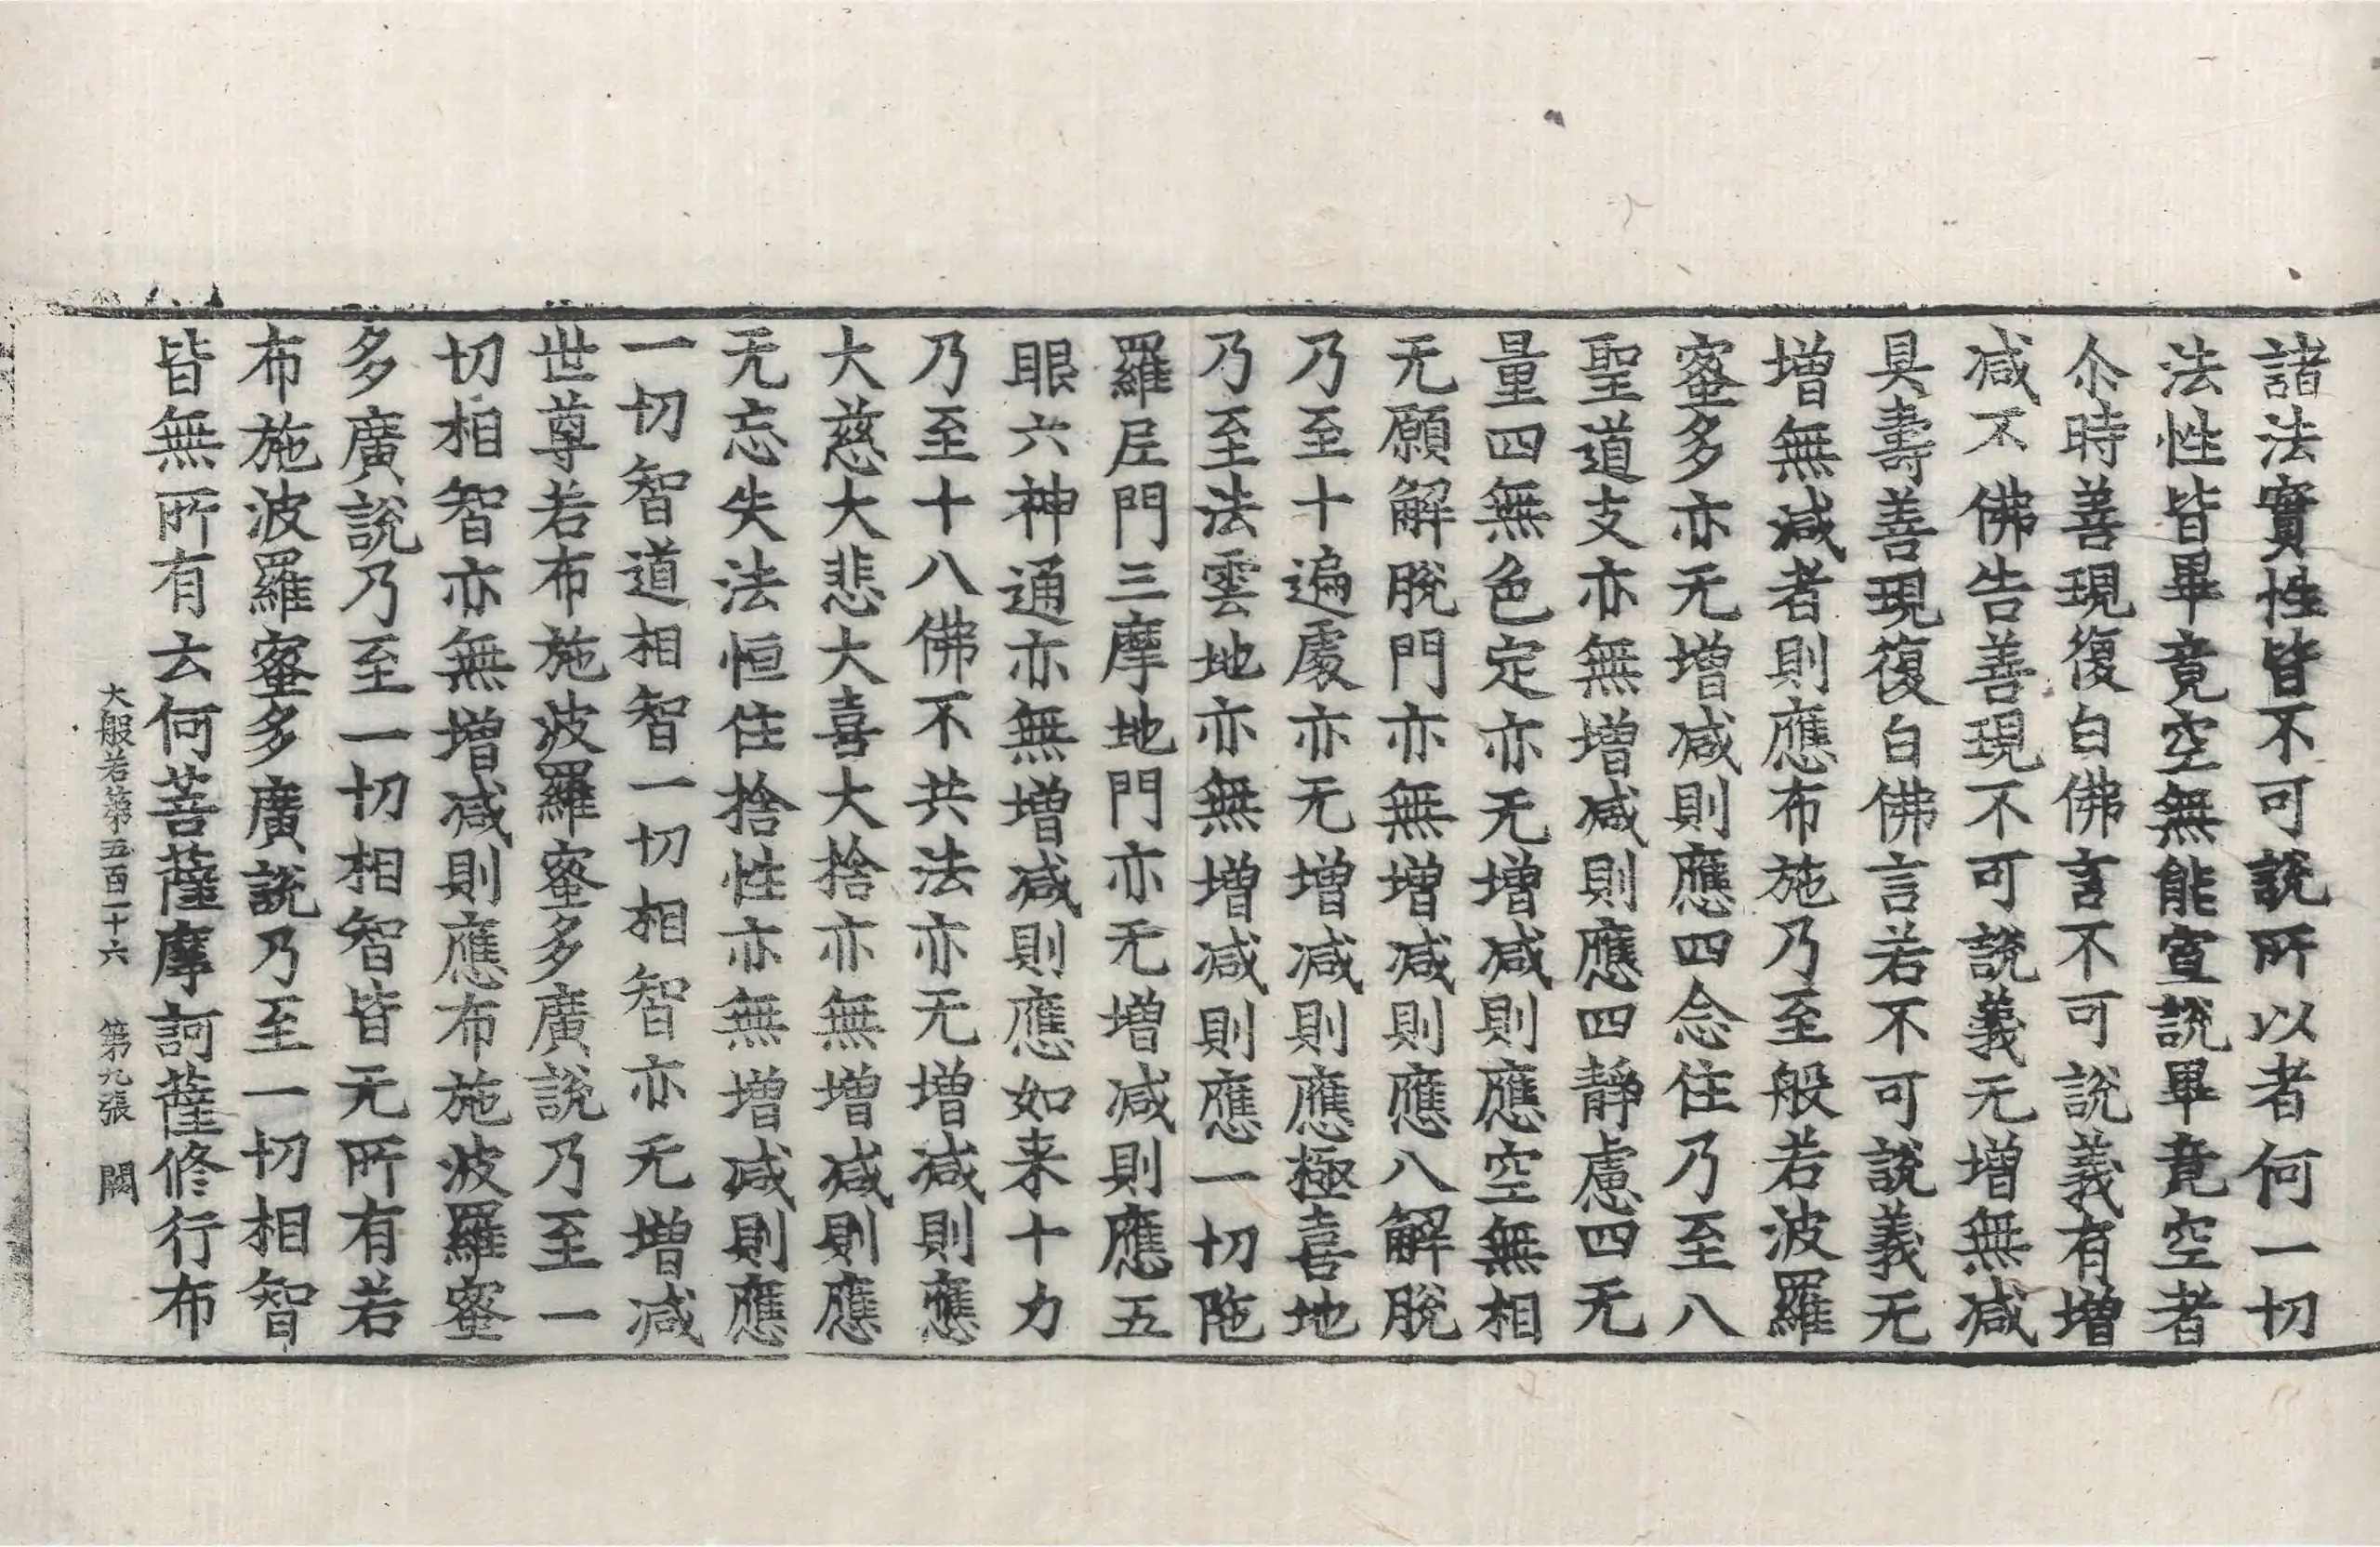 諸法實性皆不可說所以者何一切
法性皆畢竟空無能宣說畢竟空者
尒時善現復白佛言不可說義有增
減不佛告善現不可說義无增無減
具壽善現復白佛言若不可說義无
增無減者則應布施乃至般若波羅
蜜多亦无增減則應四念住乃至八
聖道支亦無增減則應四靜慮四无
量四無色定亦无增減則應空無相
无願解脫門亦無增減則應八解脫
乃至十遍處亦无增減則應極喜地
乃至法雲地亦無增減則應一切陁
羅尼門三摩地門亦无增減則應五
眼六神通亦無增減則應如来十力
乃至十八佛不共法亦无增減則應
大慈大悲大喜大捨亦無增減則應
无忘失法恒住捨性亦無增減則應
一切智道相智一切相智亦无增減
世尊若布施波羅蜜多廣說乃至一
切相智亦無增減則應布施波羅蜜
多廣說乃至一切相智皆无所有若
布施波羅蜜多廣說乃至一切相智
皆無所有云何菩薩摩訶薩修行布
大般若第五百二十六　第九張　闕